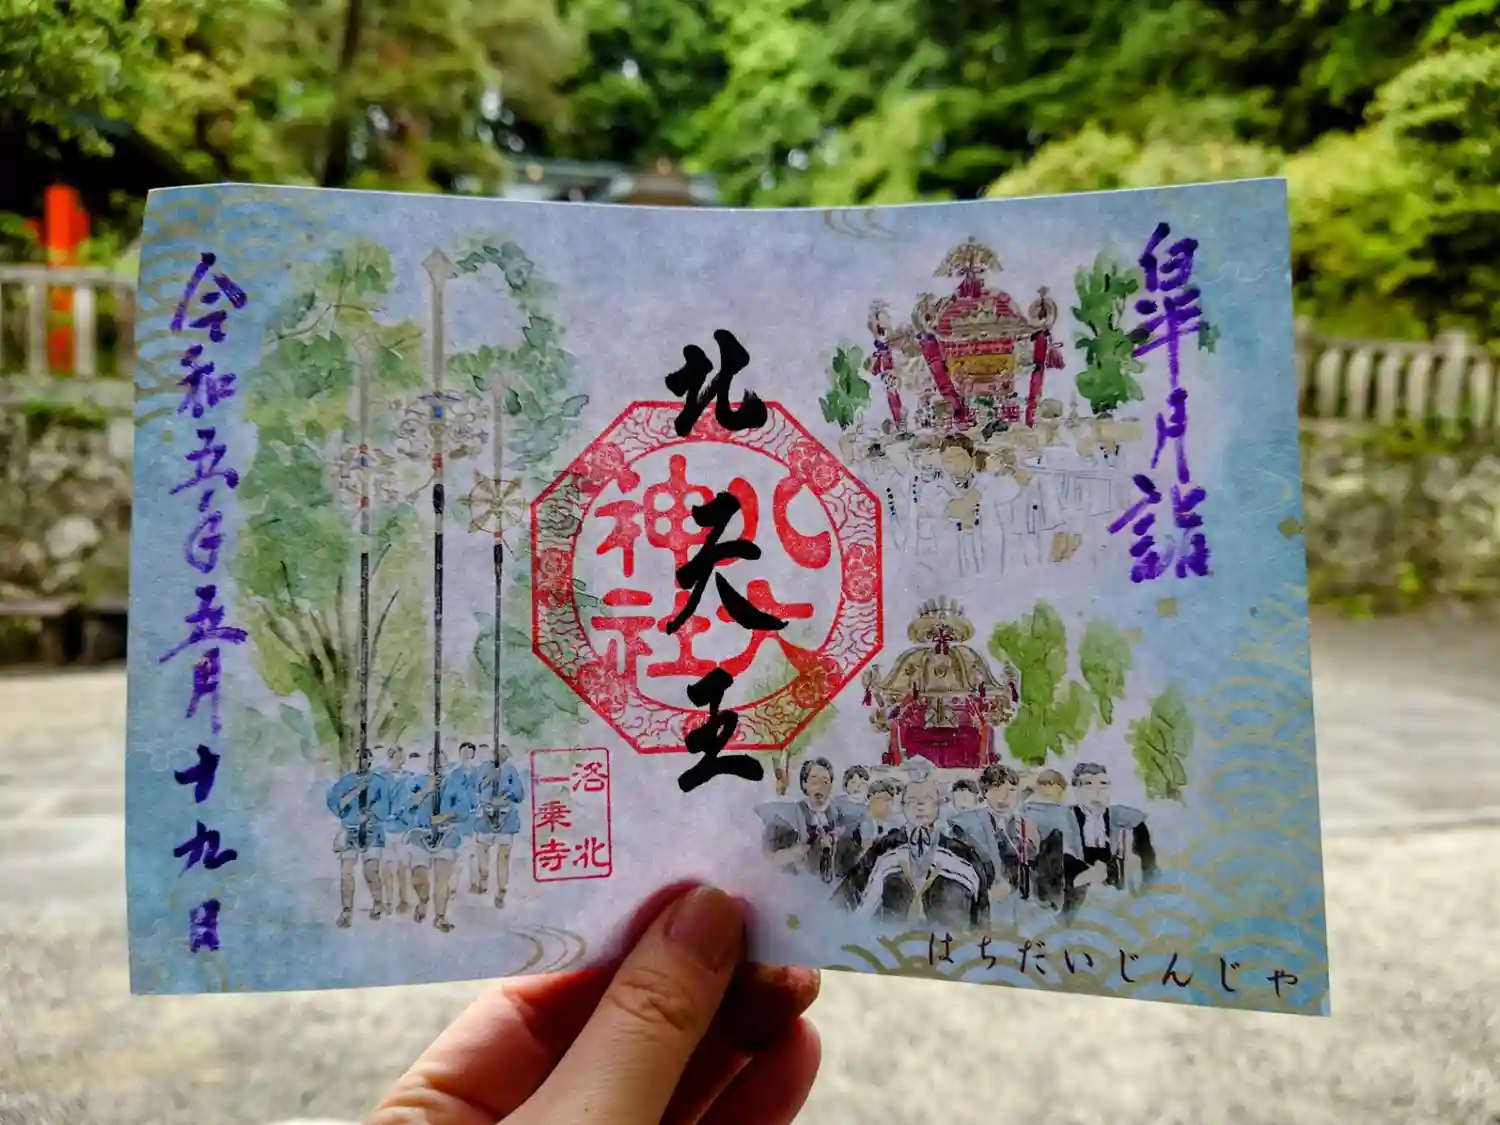 皐月詣
北天王
八大
神社
洛北
一乗寺
令和五年五月十九日
はちだいじんじゃ